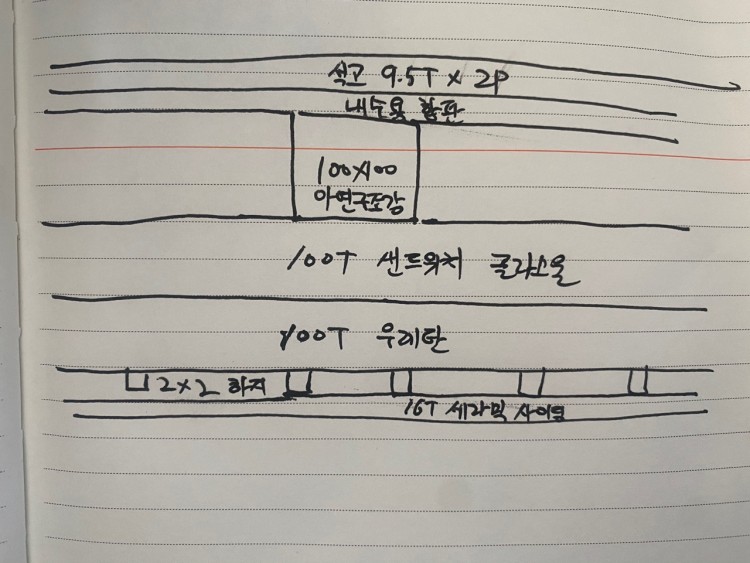 석고 9.5T x 2P
내수용 합판
100x100
아연구조강
100T 샌드위치 글라스울
100T 우레탄
2x2 하지
16T 세라믹 사이딩